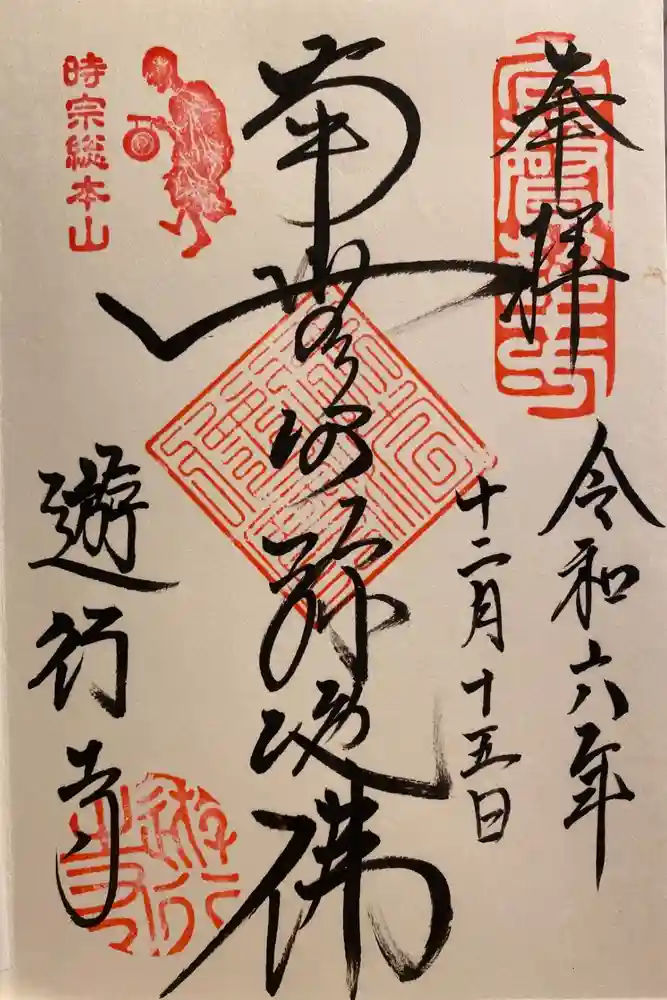 奉拝
令和六年
十二月十五日
南無阿弥陀佛
遊行寺
時宗総本山